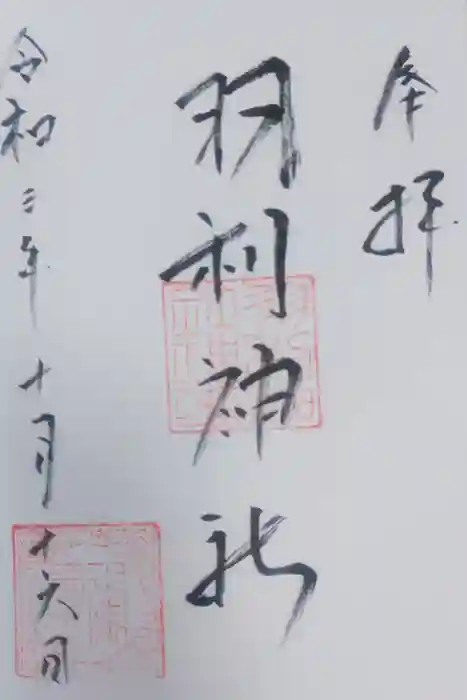 奉拝
羽利神社
令和三年十月十六日